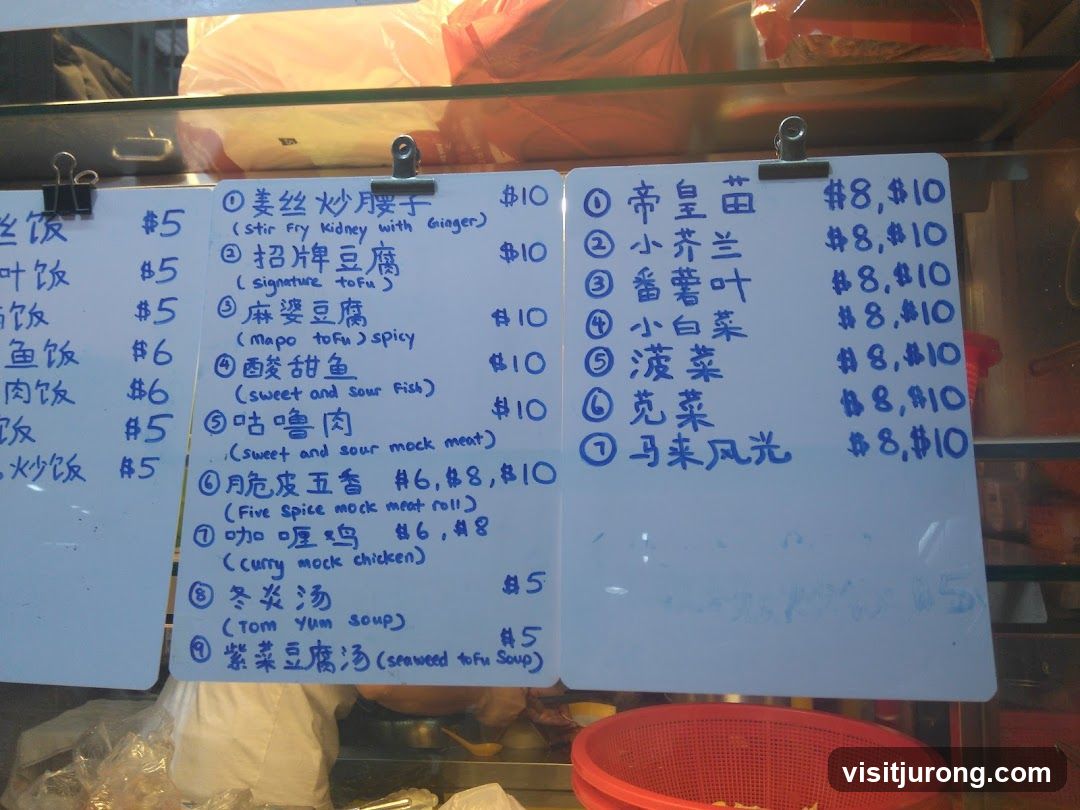 丝饭 $5
叶饭 $5
饭 $5
鱼饭 $6
肉饭 $6
饭 $5
炒饭 $5
① 姜丝炒腰子 $10
(Stir Fry Kidney with Ginger)
② 招牌豆腐 $10
(signature toFu)
③ 麻婆豆腐 $10
(Mapo toFu) spicy
④ 酸甜鱼 $10
(sweet and sour Fish)
⑤ 咕噜肉 $10
(sweet and sour mock meat)
⑥ 脆皮五香 $6, $8, $10
(Five spice mock meat roll)
⑦ 咖喱鸡 $6, $8
(curry mock chicken)
⑧ 冬炎汤 $5
(Tom Yum soup)
⑨ 紫菜豆腐汤 (seaweed toFu Soup) $5
① 帝皇苗 $8, $10
② 小芥兰 $8, $10
③ 番薯叶 $8, $10
④ 小白菜 $8, $10
⑤ 菠菜 $8, $10
⑥ 苋菜 $8, $10
⑦ 马来风光 $8, $10
visitjurong.com